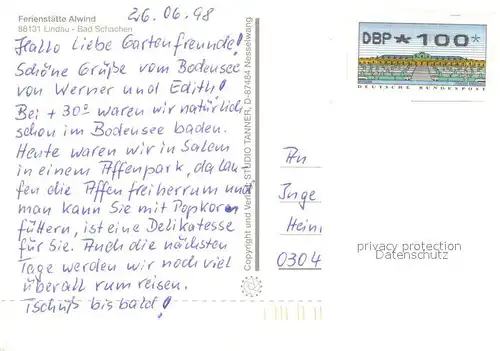 26.06.98
Ferienstätte Alwind
88131 Lindau - Bad Schachen
Hallo Liebe Gartenfreunde!
Schöne Grüße vom Bodensee
von Werner und Edith!
Bei +30° waren wir natürlich
schon im Bodensee baden.
Heute waren wir in Salem
in einem Affenpark, da lau-
fen die Affen frei herrum und
man kann Sie mit Popkoren
füttern, ist eine Delikatesse
für Sie. Auch die nächsten
Tage werden wir noch viel
überall rum reisen.
Tschüß bis bald!
Copyright und Verlag: STUDIO TANNER, D-87484 Nesselwang
DBP *100*
DEUTSCHE BUNDESPOST
An
Inge
Hein
0304
privacy protection
Datenschutz